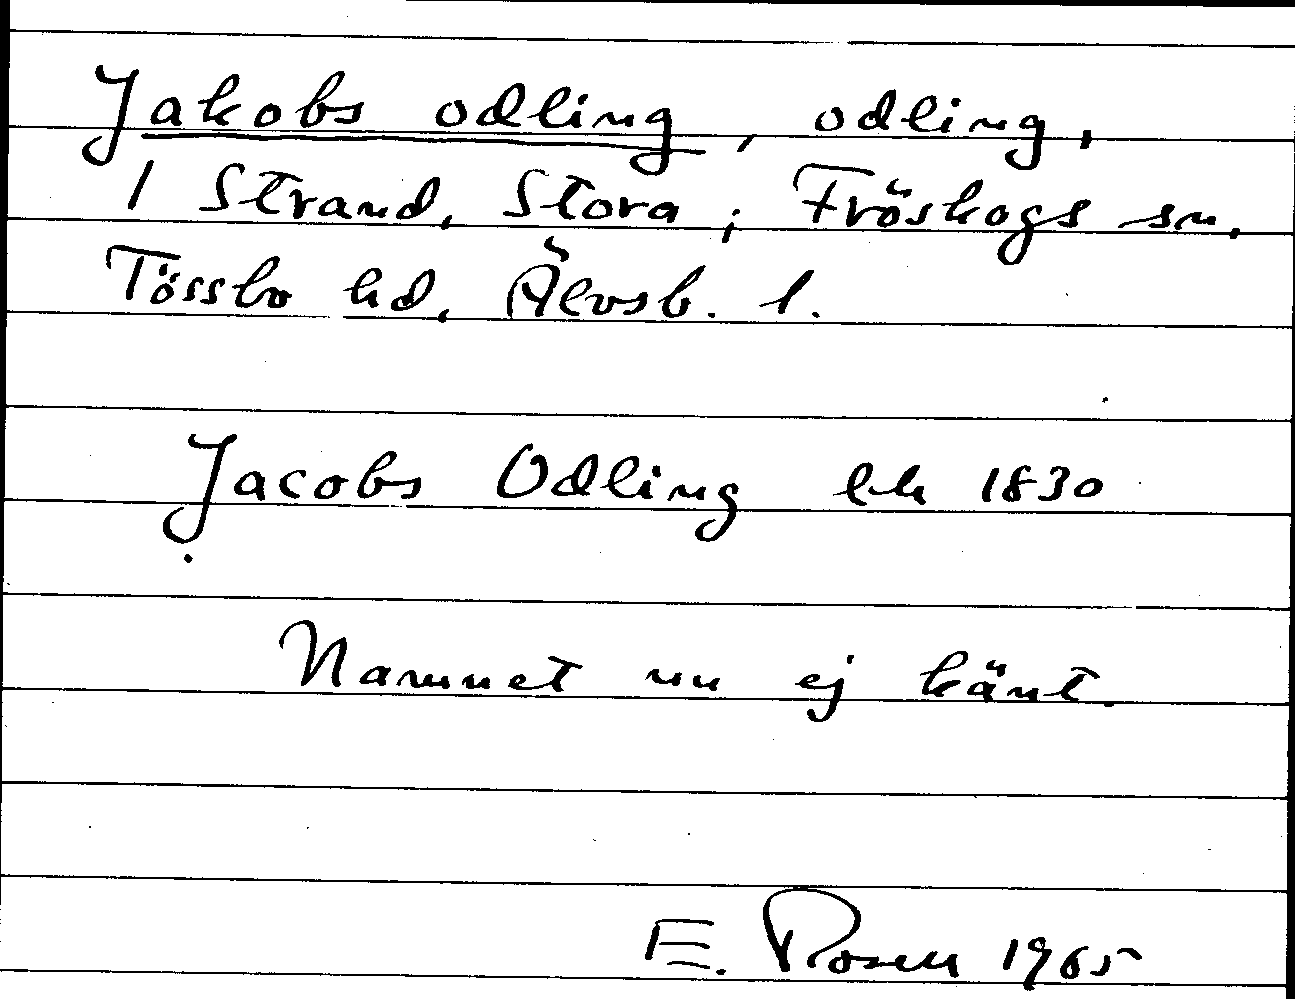 Jakobs odling, odling,
1 Strand, Stora; Fröskogs sn.
Tössbo hd, Älvsb. l.
Jacobs Odling lh 1830
Namnet nu ej känt.
E. Rosén 1965